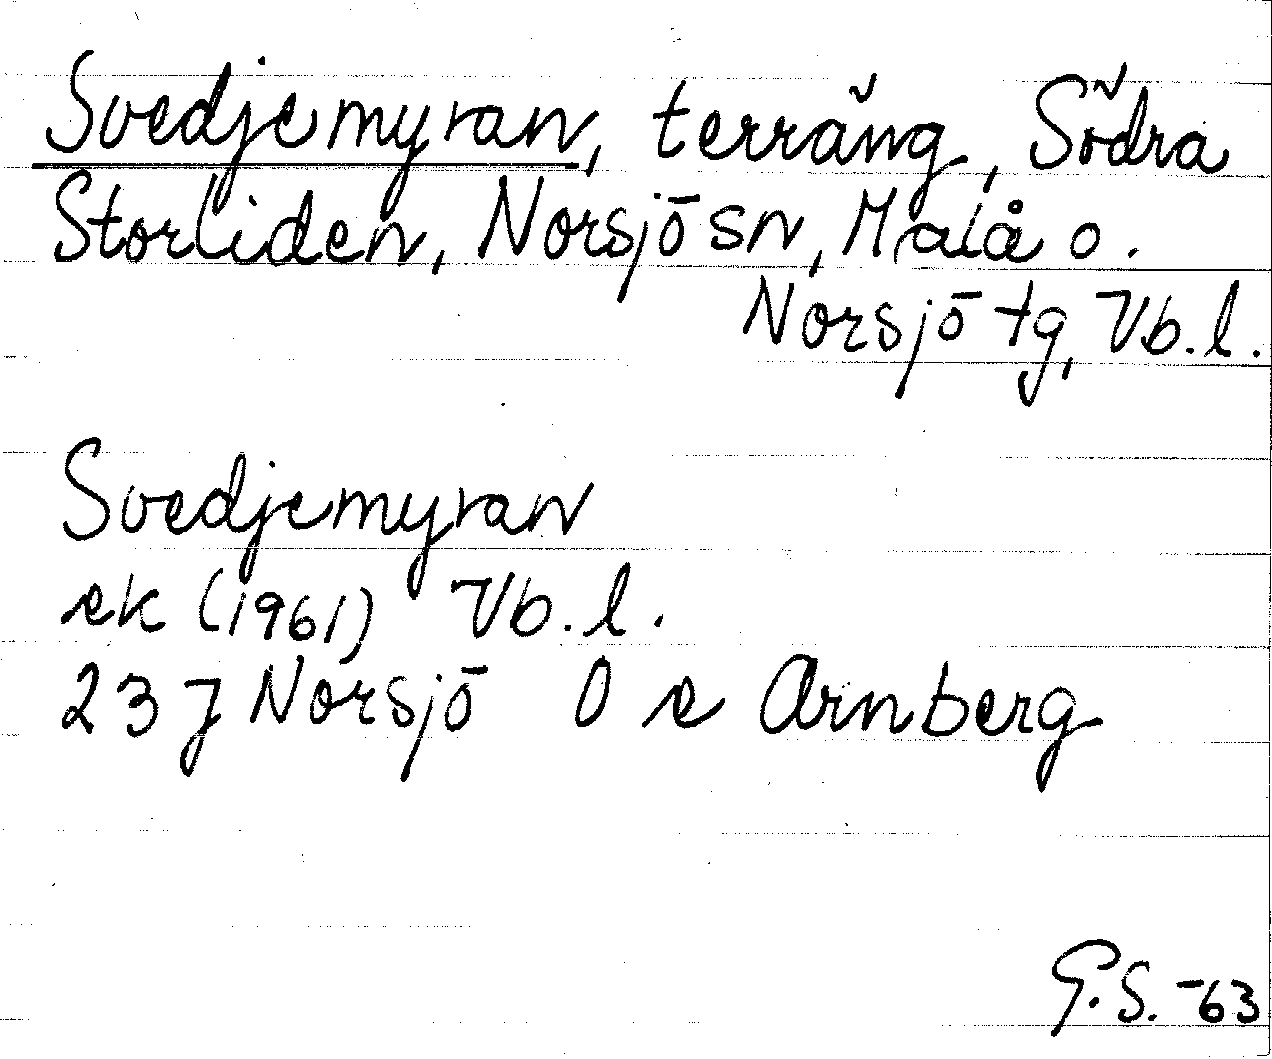 Svedjemyran, terräng, Södra
Storliden, Norsjö sn, Malå o.
Norsjö tg, Vb. l.
Svedjemyran
ek (1961) Vb. l.
23 J Norsjö O e Arnberg
G. S. -63